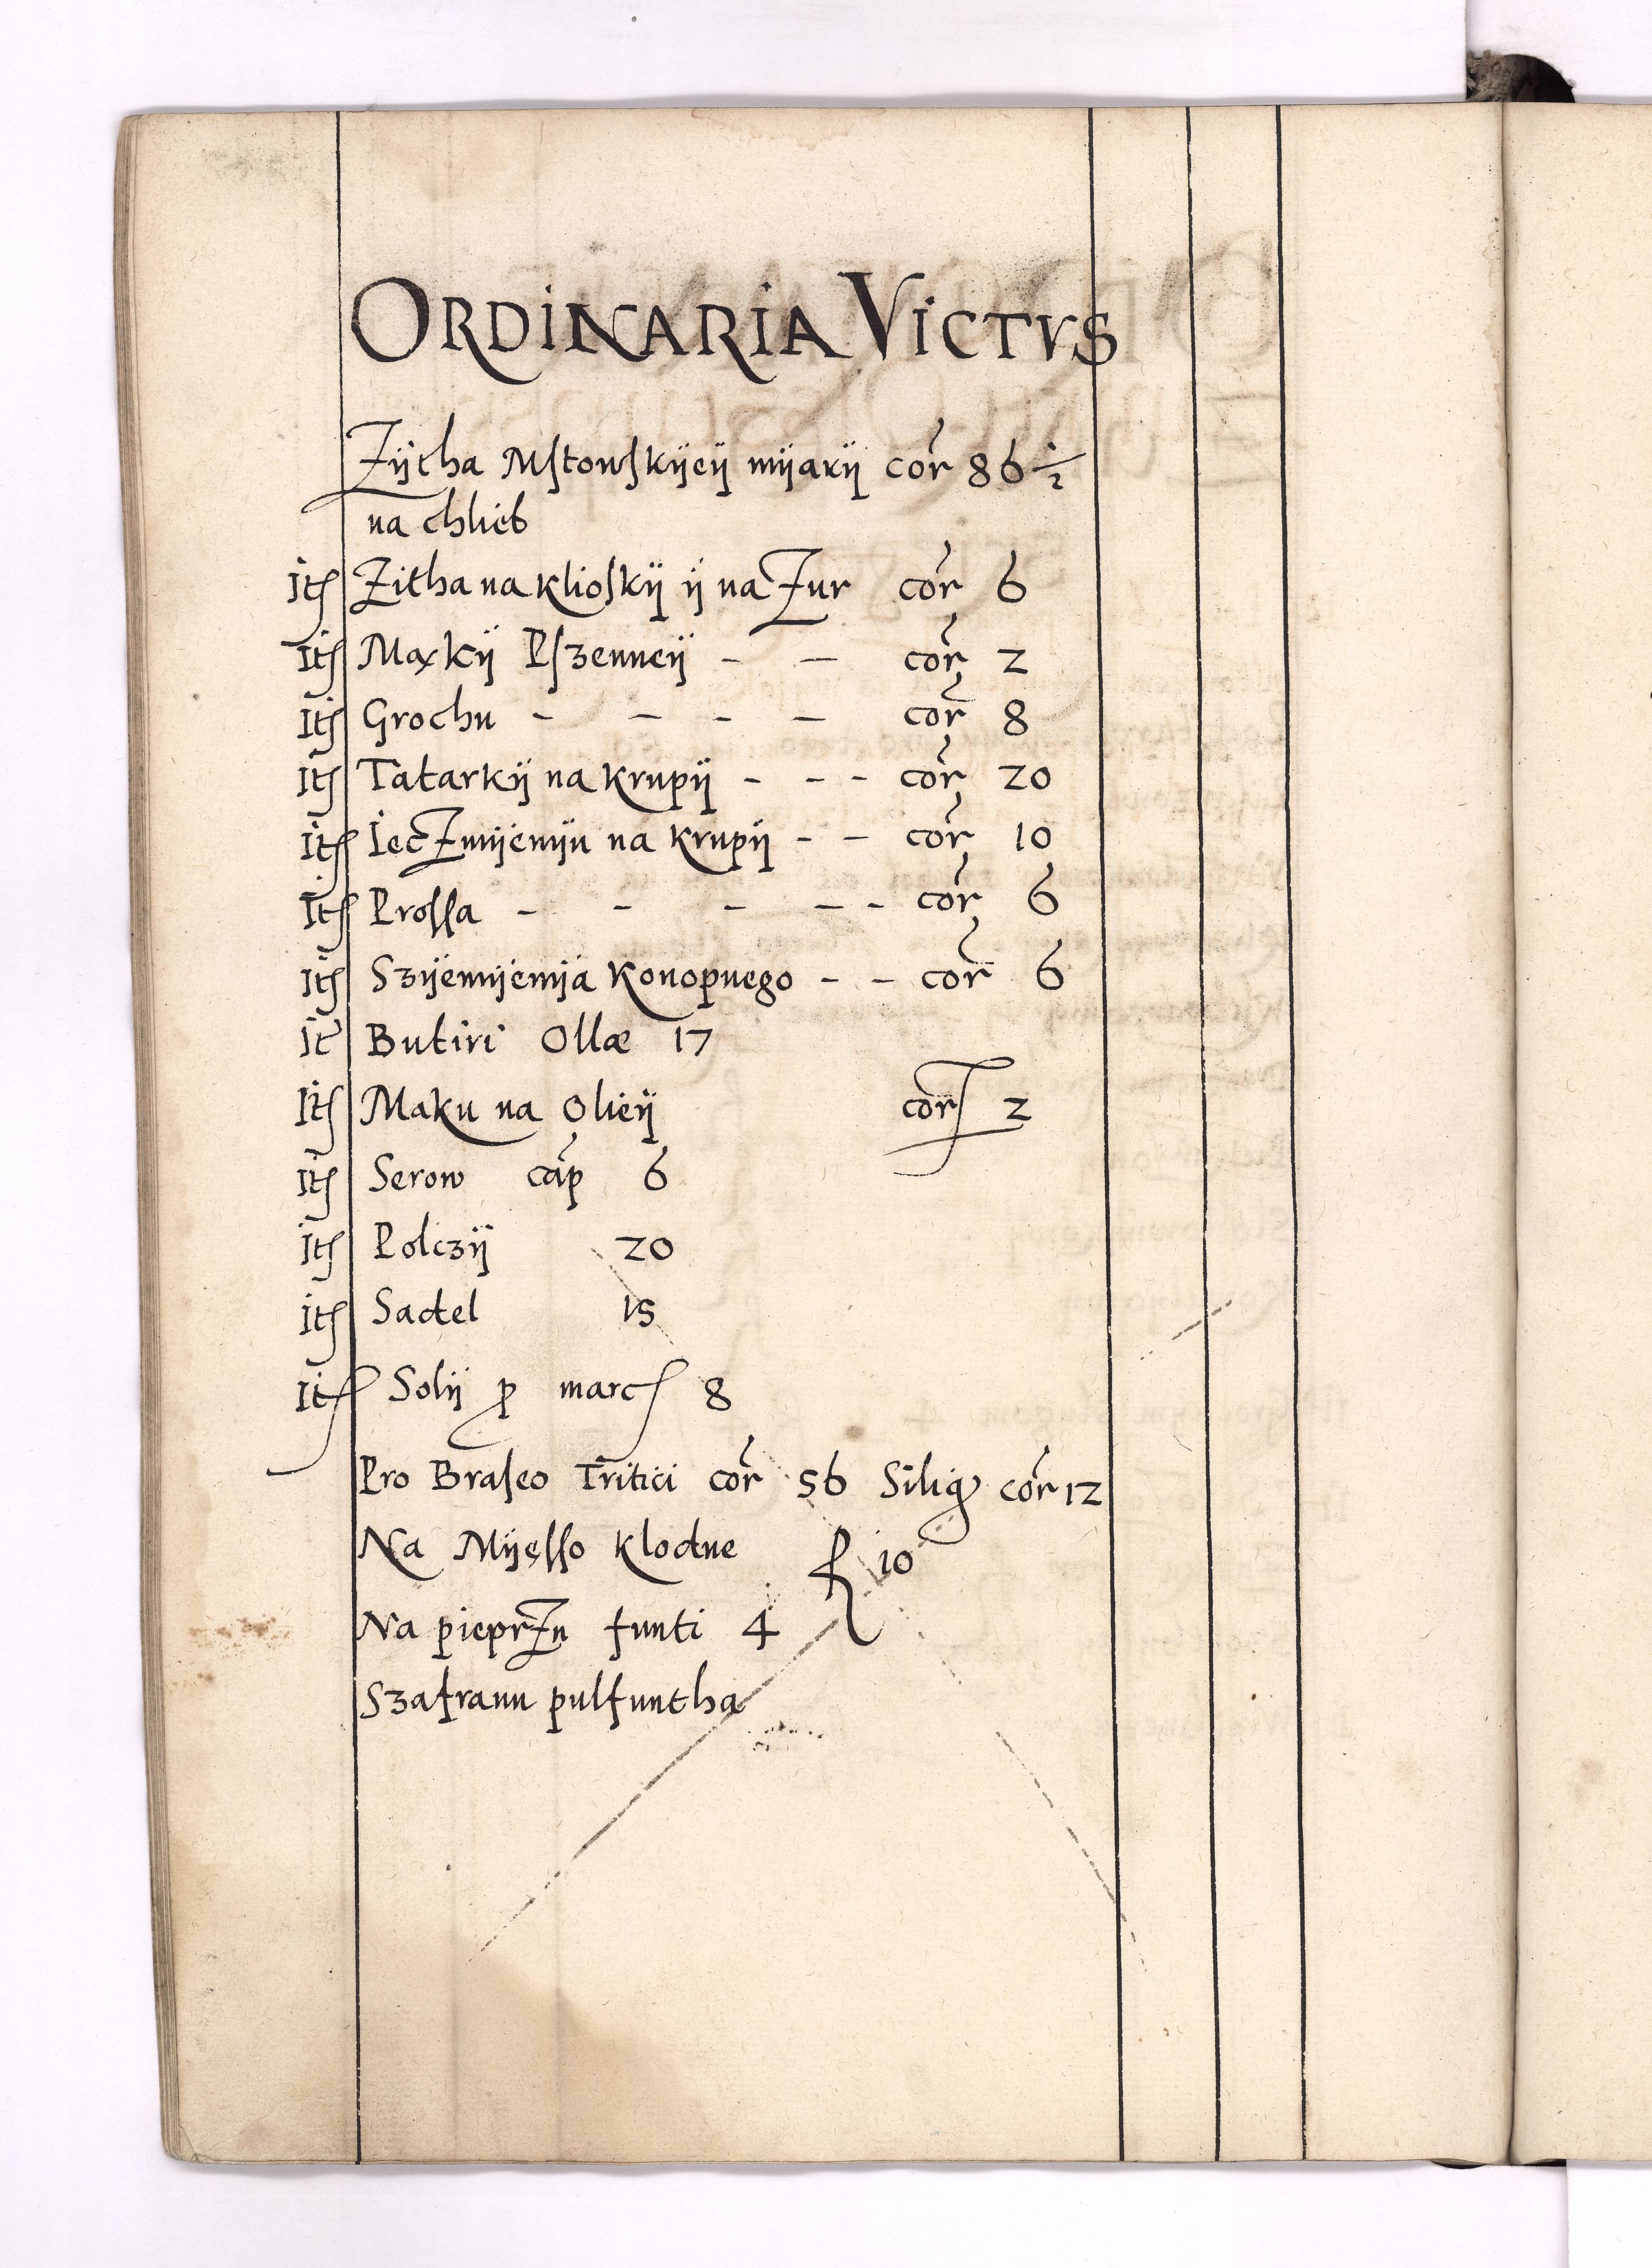 ORDINARIA VICTVS
Zÿtha Mstowskÿeÿ mÿarÿ cor 86 ½
na chlieb
Itꝭ Zitha na klioskÿ ÿ na Zur cor 6
Itꝭ Mąkÿ Pszenneÿ - - cor 2
Itꝭ Grochu - - - - cor 8
Itꝭ Tatarkÿ na krupÿ - - - cor 20
Itꝭ IecZmÿenÿu na krupÿ - - cor 10
Itꝭ Prossa - - - - - cor 6
Itꝭ Szÿemÿenÿa konopnego - - cor 6
It Butiri Ollæ 17
Itꝭ Maku na Olieÿ corꝭ 2
Itꝭ Serow cap 6
Itꝭ Polczÿ 20
Itꝭ Sadel 15
Itꝭ Solÿ p marcꝭ 8
Pro Braseo Tritici cor 56 Silig cor 12
Na Mÿęsso klodne 10
Na pieprZu funti 4
Szafranu pulfuntha